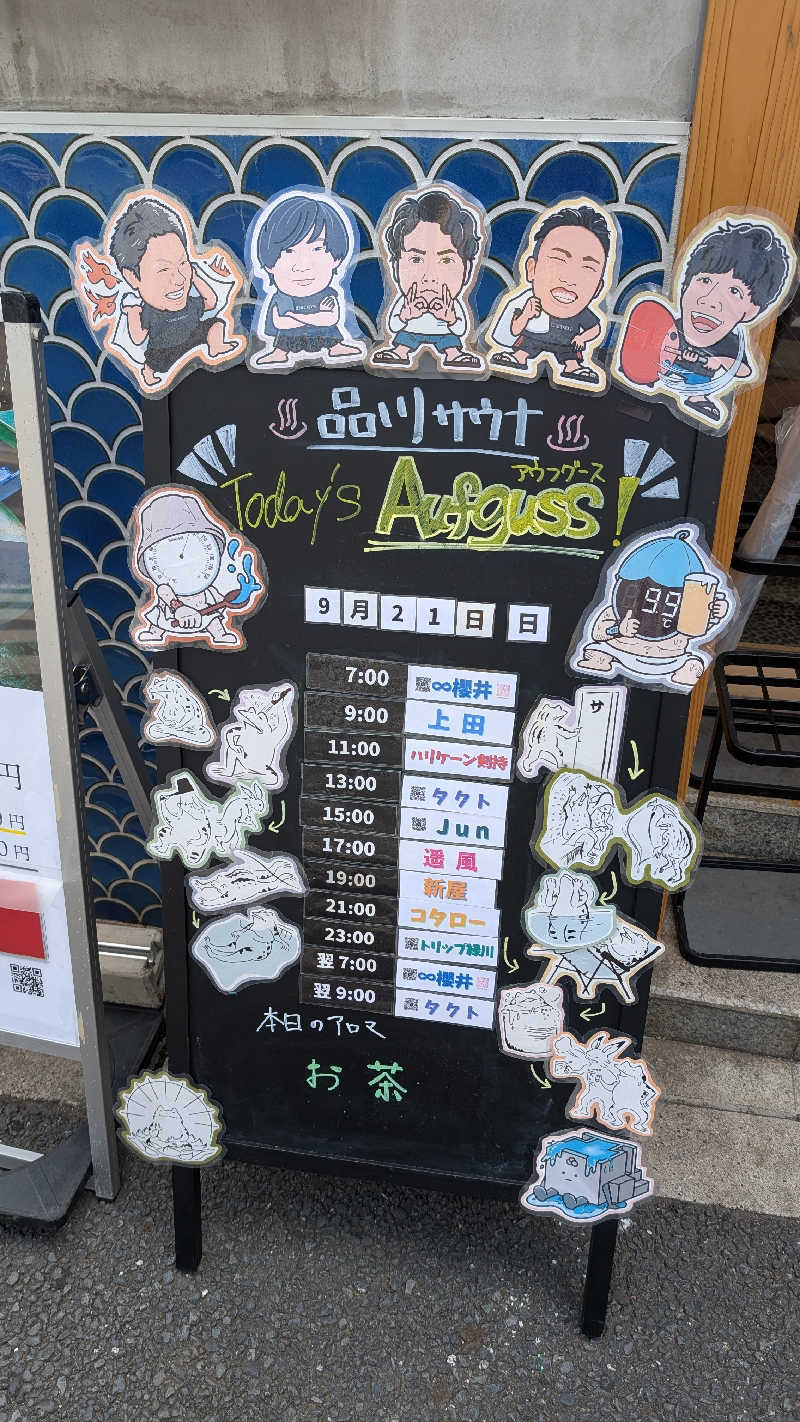 品川サウナ
アウフグース
Today's Aufguss!
9月21日 日
7:00 ∞櫻井
9:00 上田
11:00 ハリケーン剣持
13:00 タクト
15:00 Jun
17:00 遥風
19:00 新屋
21:00 コタロー
23:00 トリップ緑川
翌 7:00 ∞櫻井
翌 9:00 タクト
本日のアロマ
お茶
99
℃
サ
円
円
円